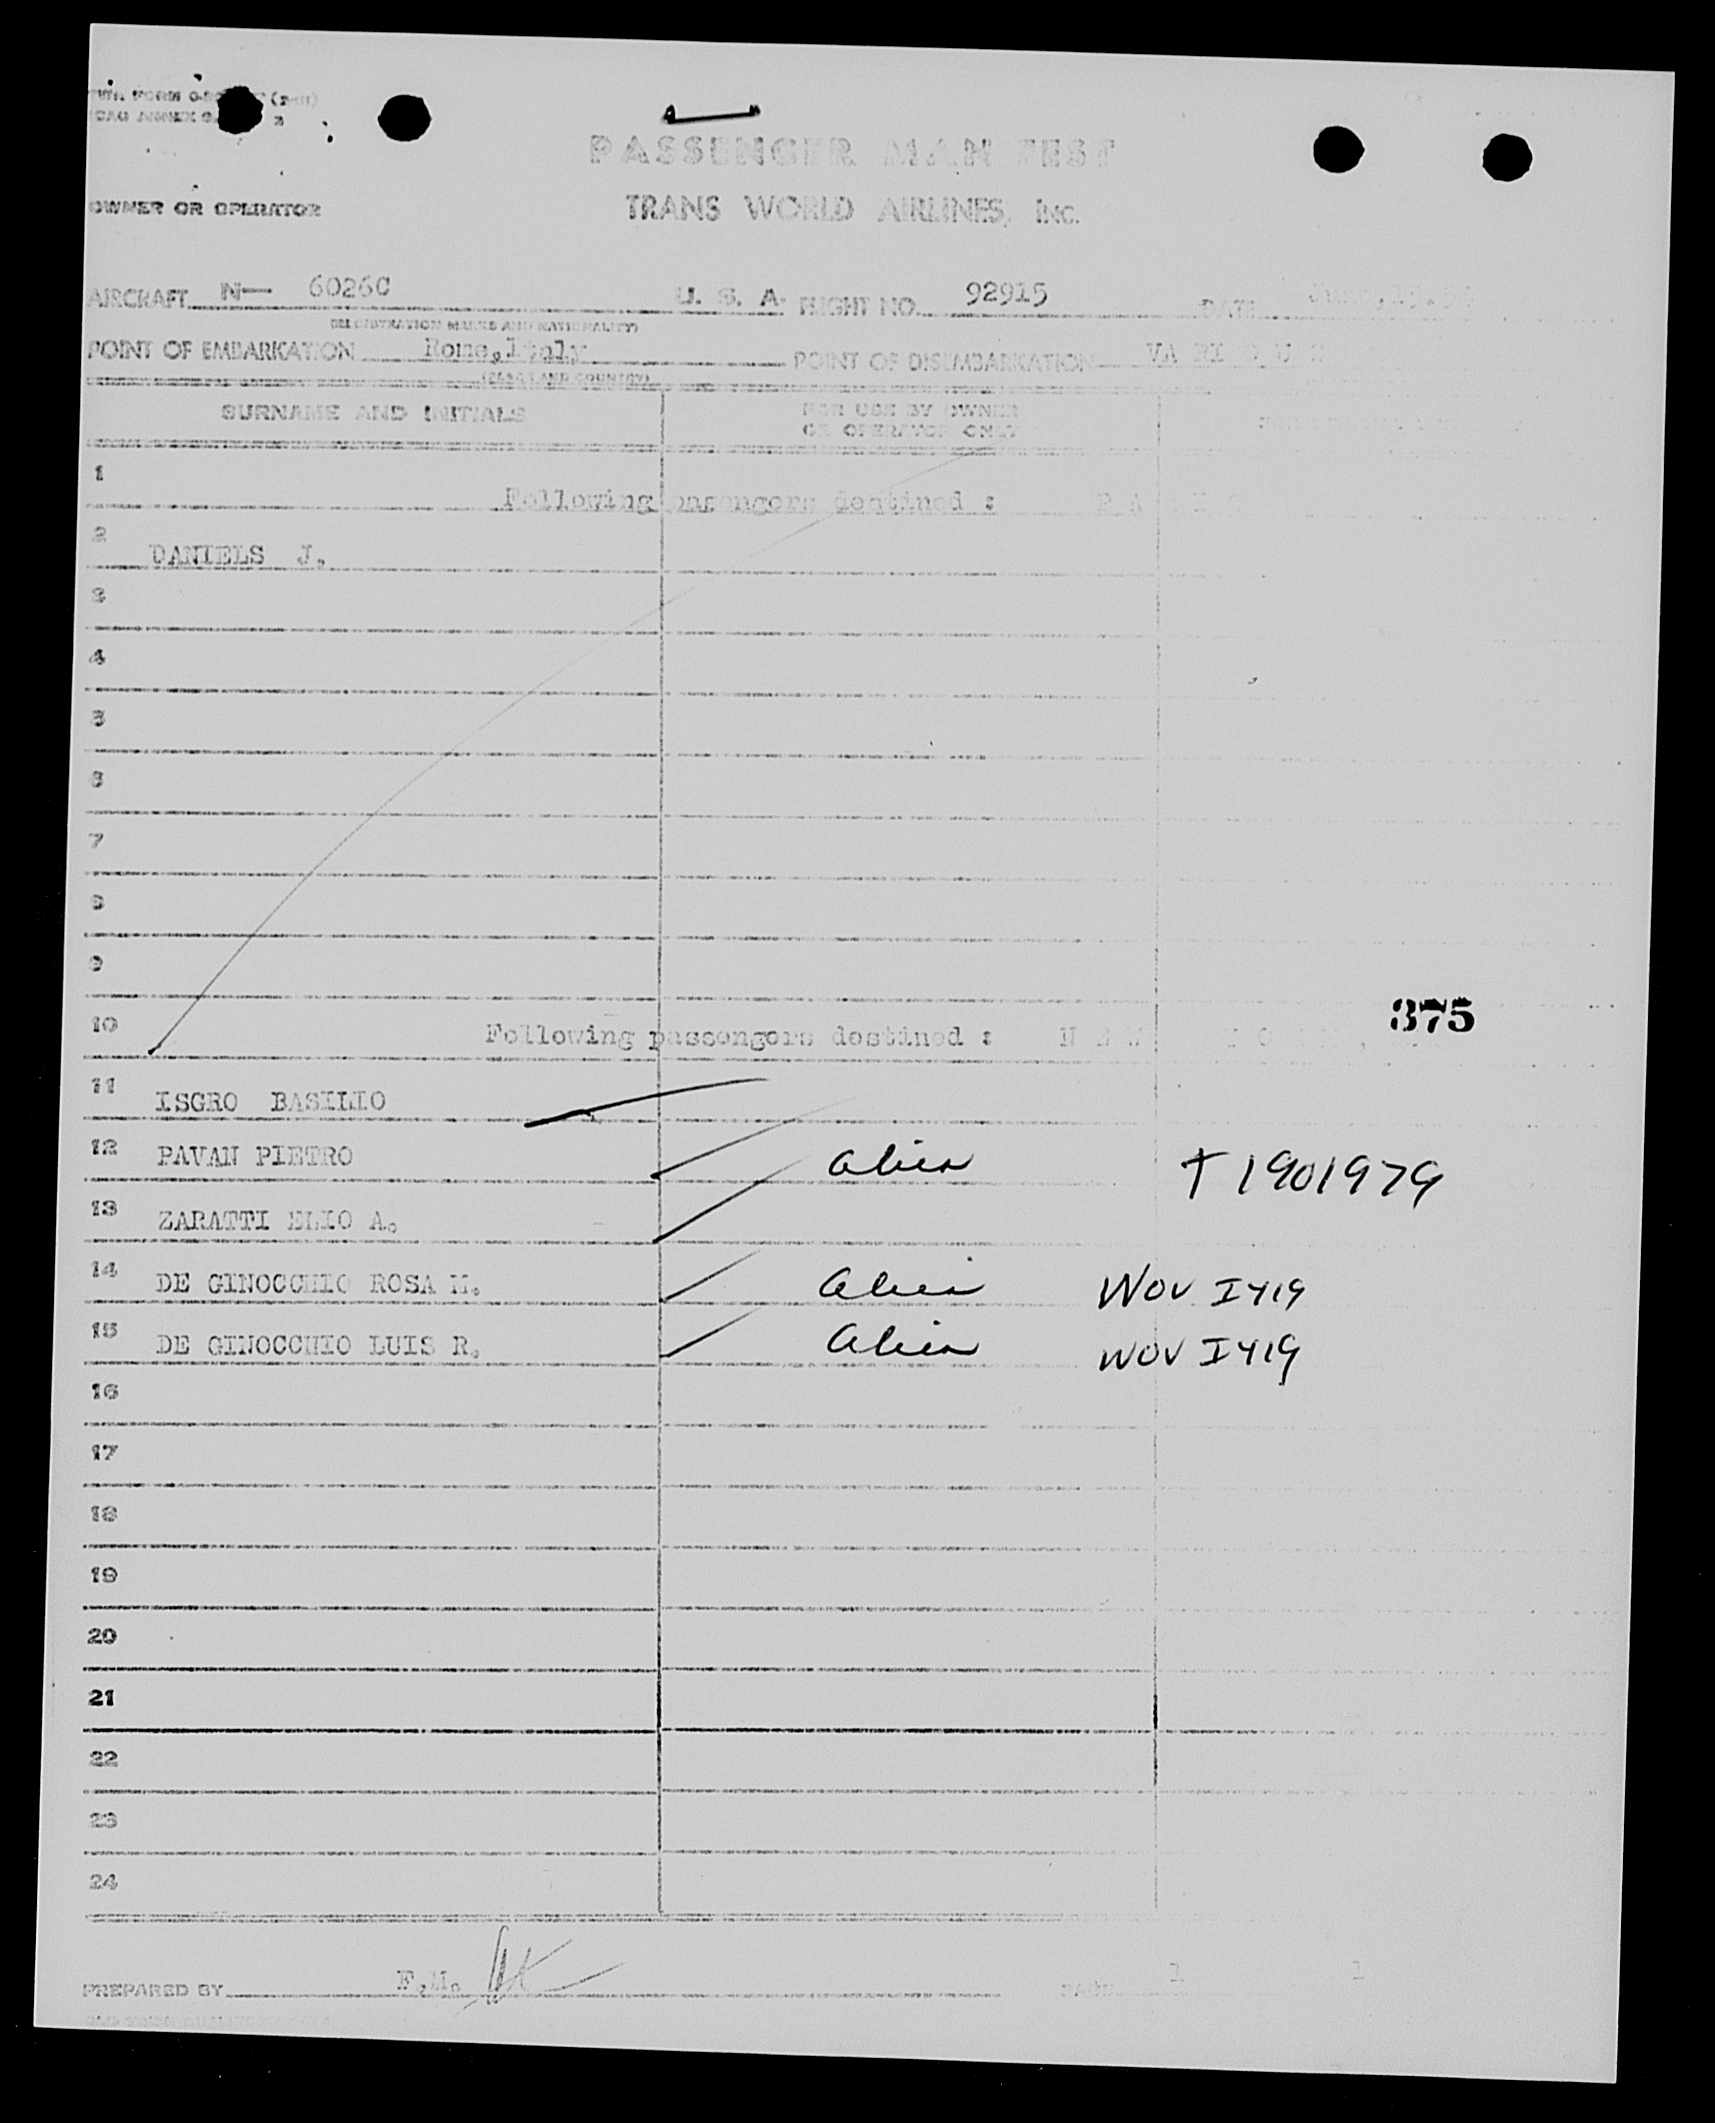 OWNER OR OPERATOR
PASSENGER MANIFEST
TRANS WORLD AIRLINES, INC.
AIRCRAFT N— 6026C U. S. A. FLIGHT NO. 92915 DATE June,
(REGISTRATION MARKS AND NATIONALITY)
POINT OF EMBARKATION Rome,Italy POINT OF DISEMBARKATION VARIOUS
(PLACE AND COUNTRY)
SURNAME AND INITIALS FOR USE BY OWNER
OR OPERATOR ONLY
1 Following passengers destined :
2 DANIELS J.
3
4
5
6
7
8
9
375
10 Following passengers destined : NEW
11 ISGRO BASILIO
12 PAVAN PIETRO alien T 1901979
13 ZARATTI ELIO A.
14 DE GINOCCHIO ROSA M. alien WOV I419
15 DE GINOCCHIO LUIS R. alien WOV I419
16
17
18
19
20
21
22
23
24
PREPARED BY F.M. PAGE 1 1